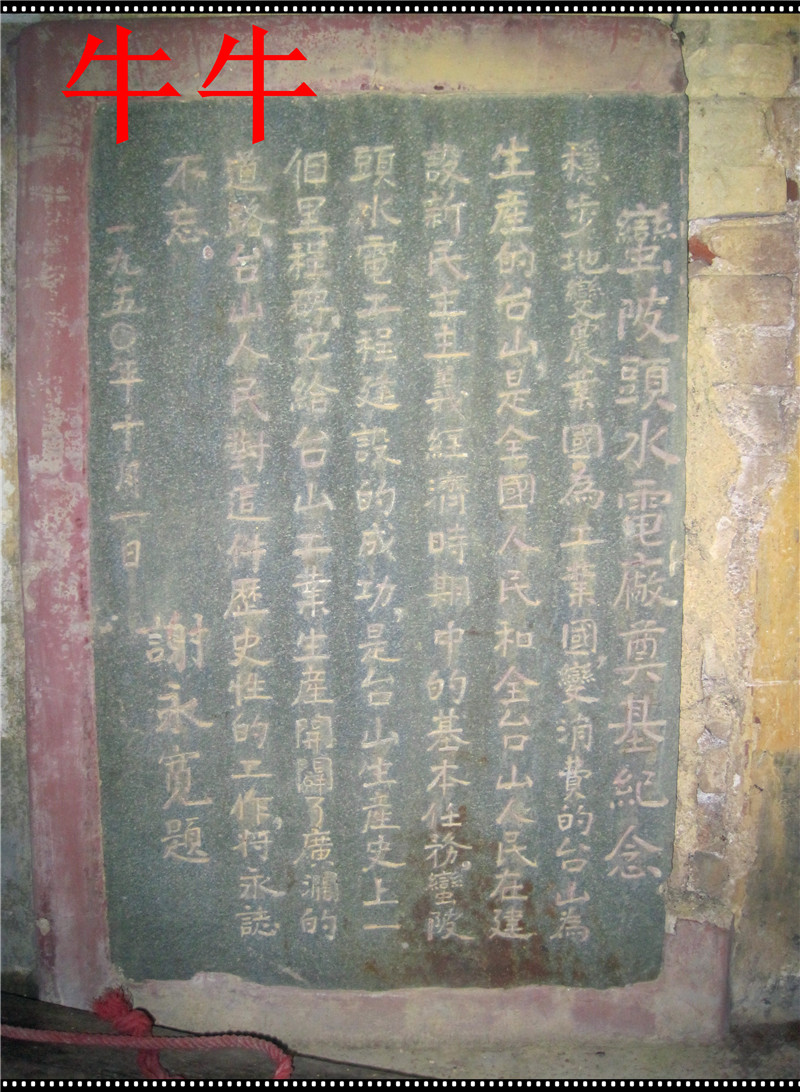 牛牛
蠻陂頭水電廠奠基紀念
穩步地變農業國為工業國,變消費的台山為
生產的台山,是全國人民和全台山人民在建
設新民主主義經濟時期中的基本任務。蠻陂
頭水電工程建設的成功,是台山生產史上一
個里程碑,它給台山工業生產開闢了廣濶的
道路,台山人民對這件歷史性的工作,將永誌
不忘。
一九五〇年十月一日
謝永寬題